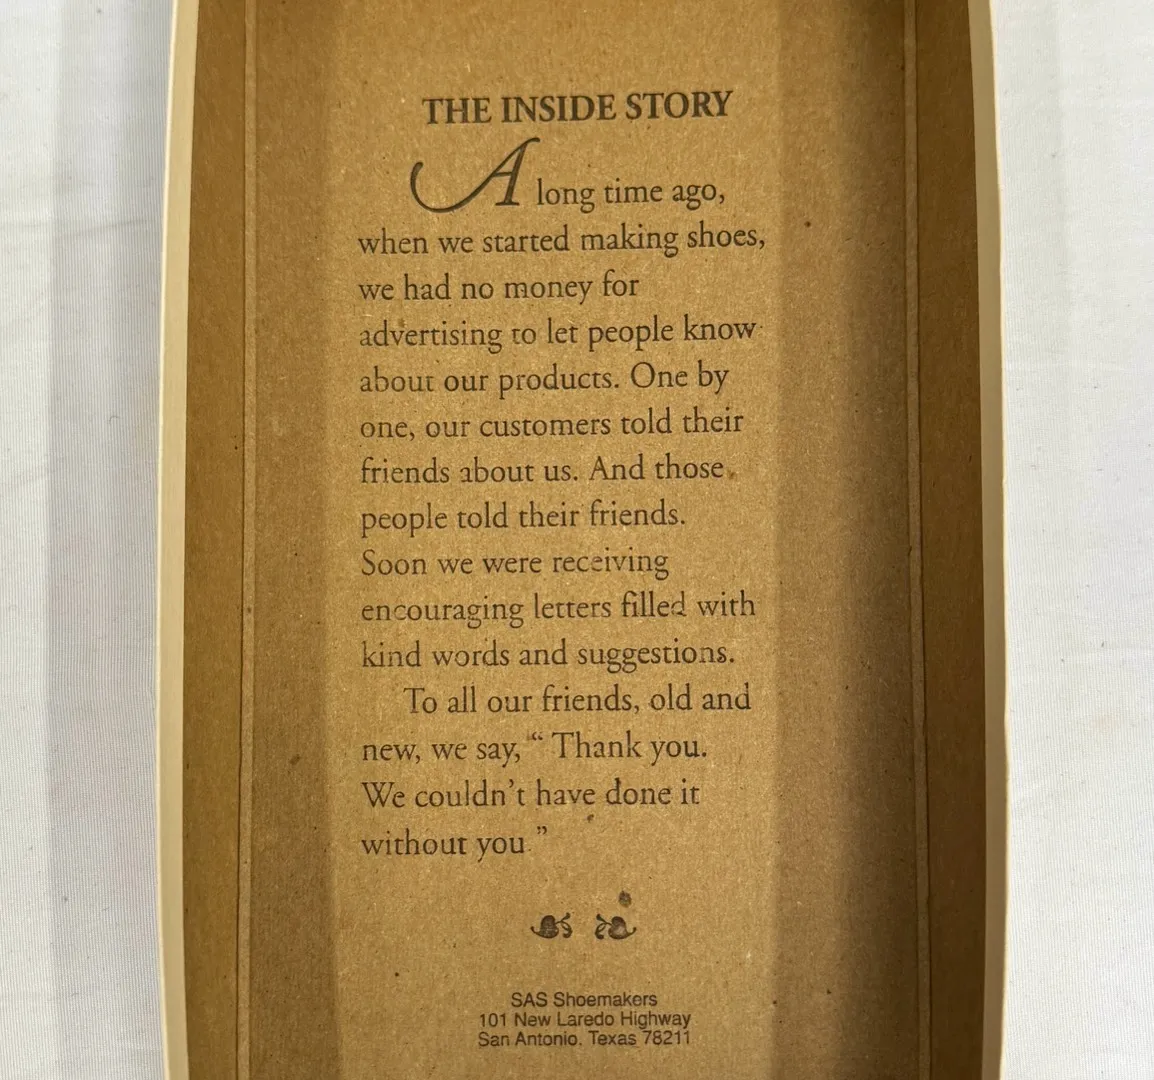 THE INSIDE STORY
A long time ago,
when we started making shoes,
we had no money for
advertising to let people know
about our products. One by
one, our customers told their
friends about us. And those
people told their friends.
Soon we were receiving
encouraging letters filled with
kind words and suggestions.
To all our friends, old and
new, we say, “ Thank you.
We couldn’t have done it
without you.”
SAS Shoemakers
101 New Laredo Highway
San Antonio, Texas 78211